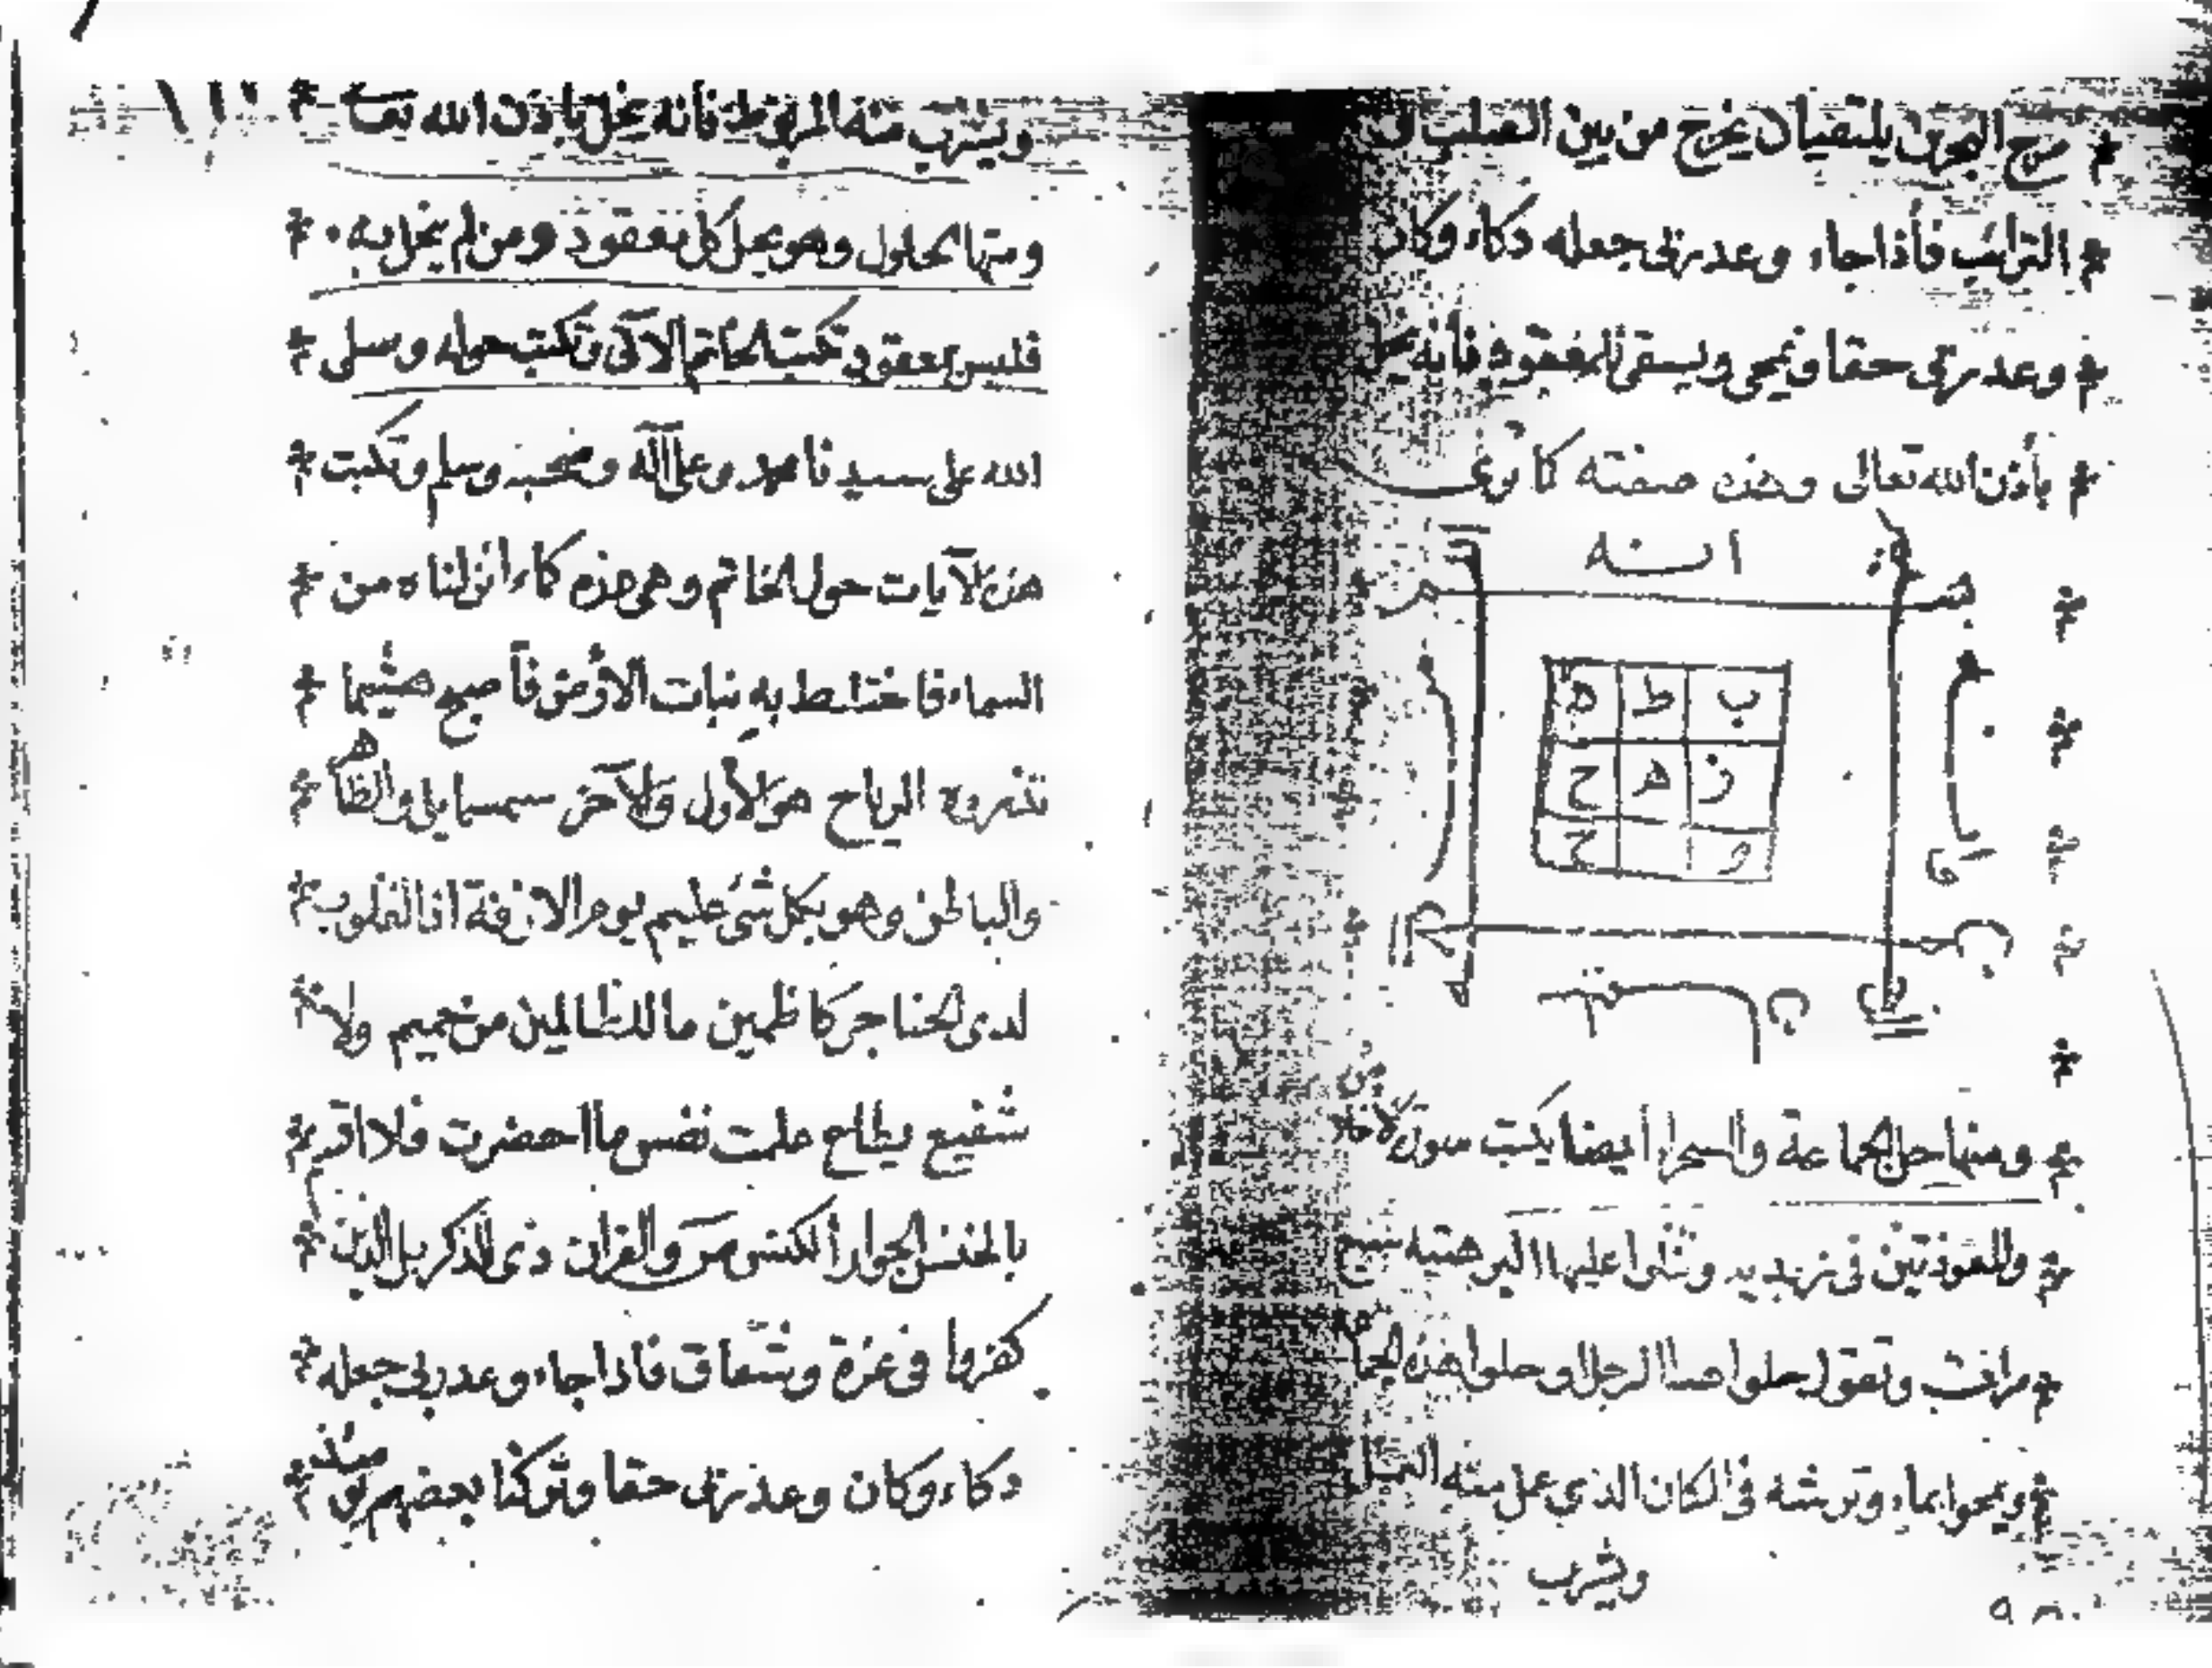 مرج البحرين يلتقيان يخرج من بين الصلب ال
الترائب فأذا جاء وعد ربى جعله دكاء وكان
وعد ربى حقا ويمحى ويسقى للمعقود فأنه يحل
بأذن الله تعالى وهذه صفته كما ترى
ب ط د
ز ه ج
و ح
ومنها حل الجماعة والسحر أيضا يكتب سورة الاخلاص
والمعوذتين فى وتتلوا عليها البرهتيه سبع
مرات وتقول حلوا هذا الرجل او حلوا هذه الجما
ويمحوا بماء وترشه فى المكان الذى عمل منه العمل
ويشرب
ويشرب منه المربوط فأنه يحل بأذن الله تعا
ومنها المحلول وهو يحل كل معقود ومن لم يحل به
فليس بمعقود تكتب الخاتم الآتى وتكتب حوله وصلى
الله على سيدنا محمد وعلى آله وصحبه وسلم وتكتب
هذه الآيات حول الخاتم وهى هذه كماء انزلناه من
السماء فاختلط به نبات الأرض فأصبح هشيما
تذروه الرياح هو الأول والآخر والظاهر
والباطن وهو بكل شئ عليم يوم الازفة اذ القلوب
لدى الحناجر كاظمين ما للظالمين من حميم ولا
شفيع يطاع علمت نفس ما احضرت فلا اقسم
بالخنس الجوار الكنس ص والقران ذى الذكر بل الذين
كفروا فى عزة وشقاق فاذا جاء وعد ربى جعله
دكاء وكان وعد ربى حقا وتركنا بعضهم يومئذ